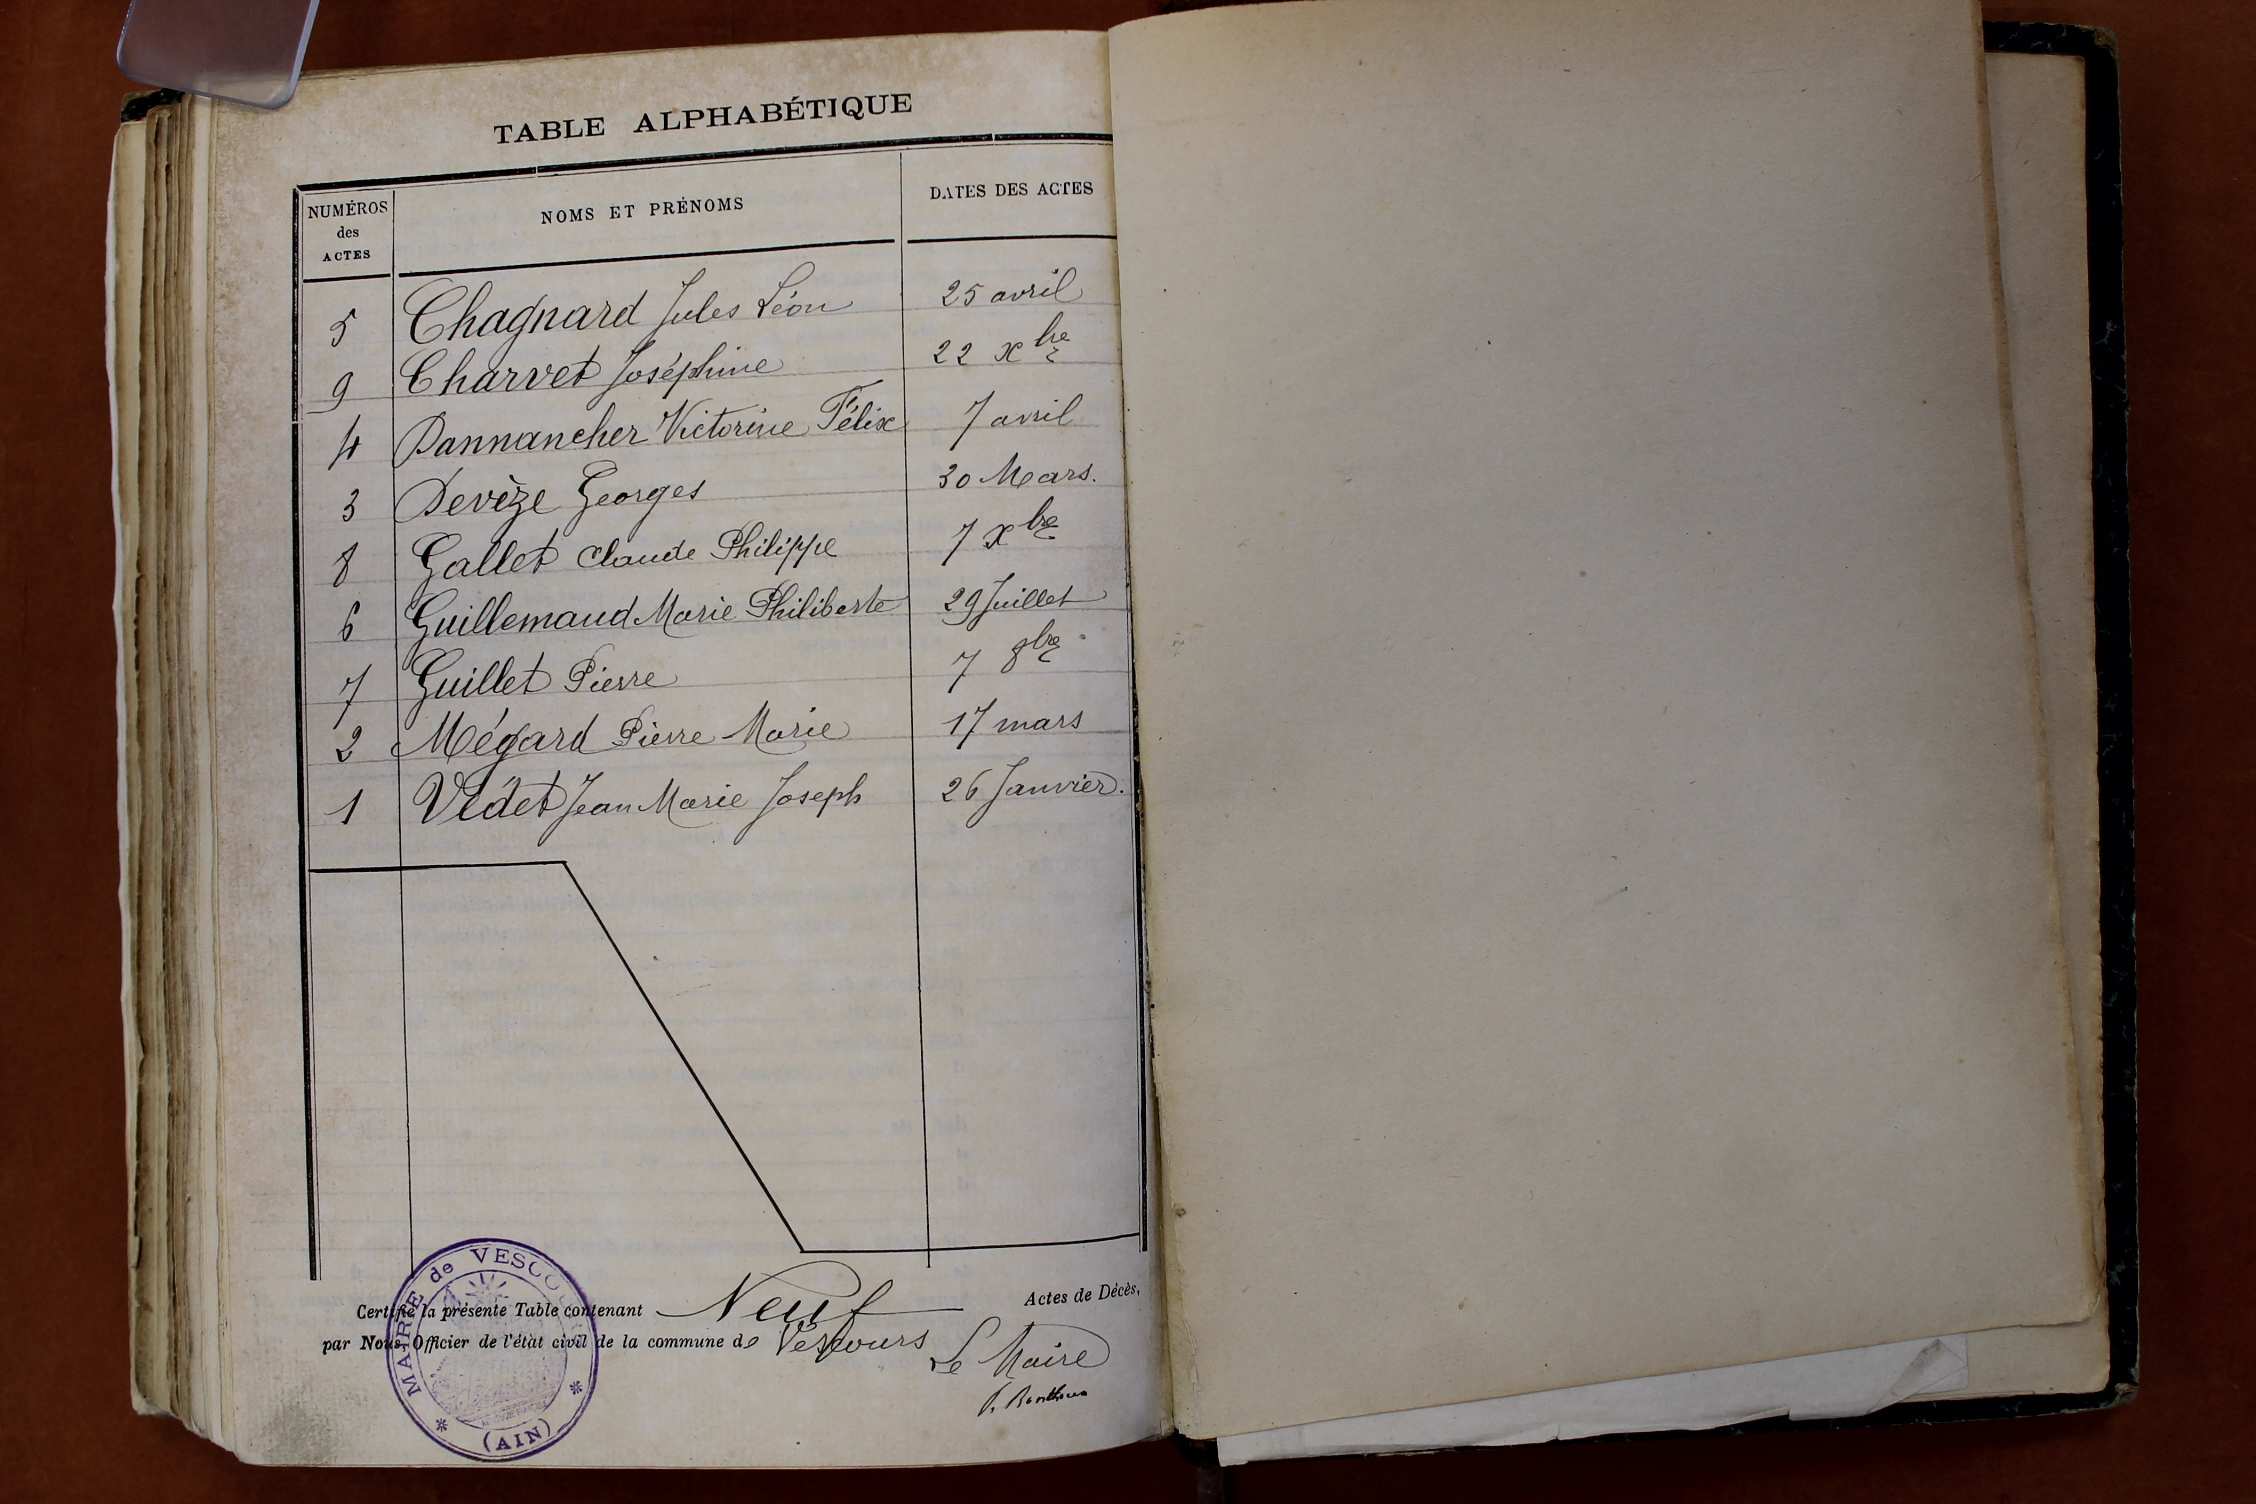 TABLE ALPHABÉTIQUE
NUMÉROS des ACTES NOMS ET PRÉNOMS DATES DES ACTES
5 Chagnard Jules Léon 25 avril
9 Charvet Joséphine 22 xbre
4 Dannancher Victorine Félix 7 avril
3 Devèze Georges 30 Mars.
8 Gallet Claude Philippe 7 xbre
6 Guillemaud Marie Philiberte 29 Juillet
7 Guillet Pierre 7 8bre
2 Mégard Pierre Marie 17 mars
1 Vedet Jean Marie Joseph 26 Janvier.
Certifié la présente Table contenant Neuf Actes de Décès,
par Nous, Officier de l'état civil de la commune de Vescours
Le Maire
MAIRIE de VESCO
(AIN)